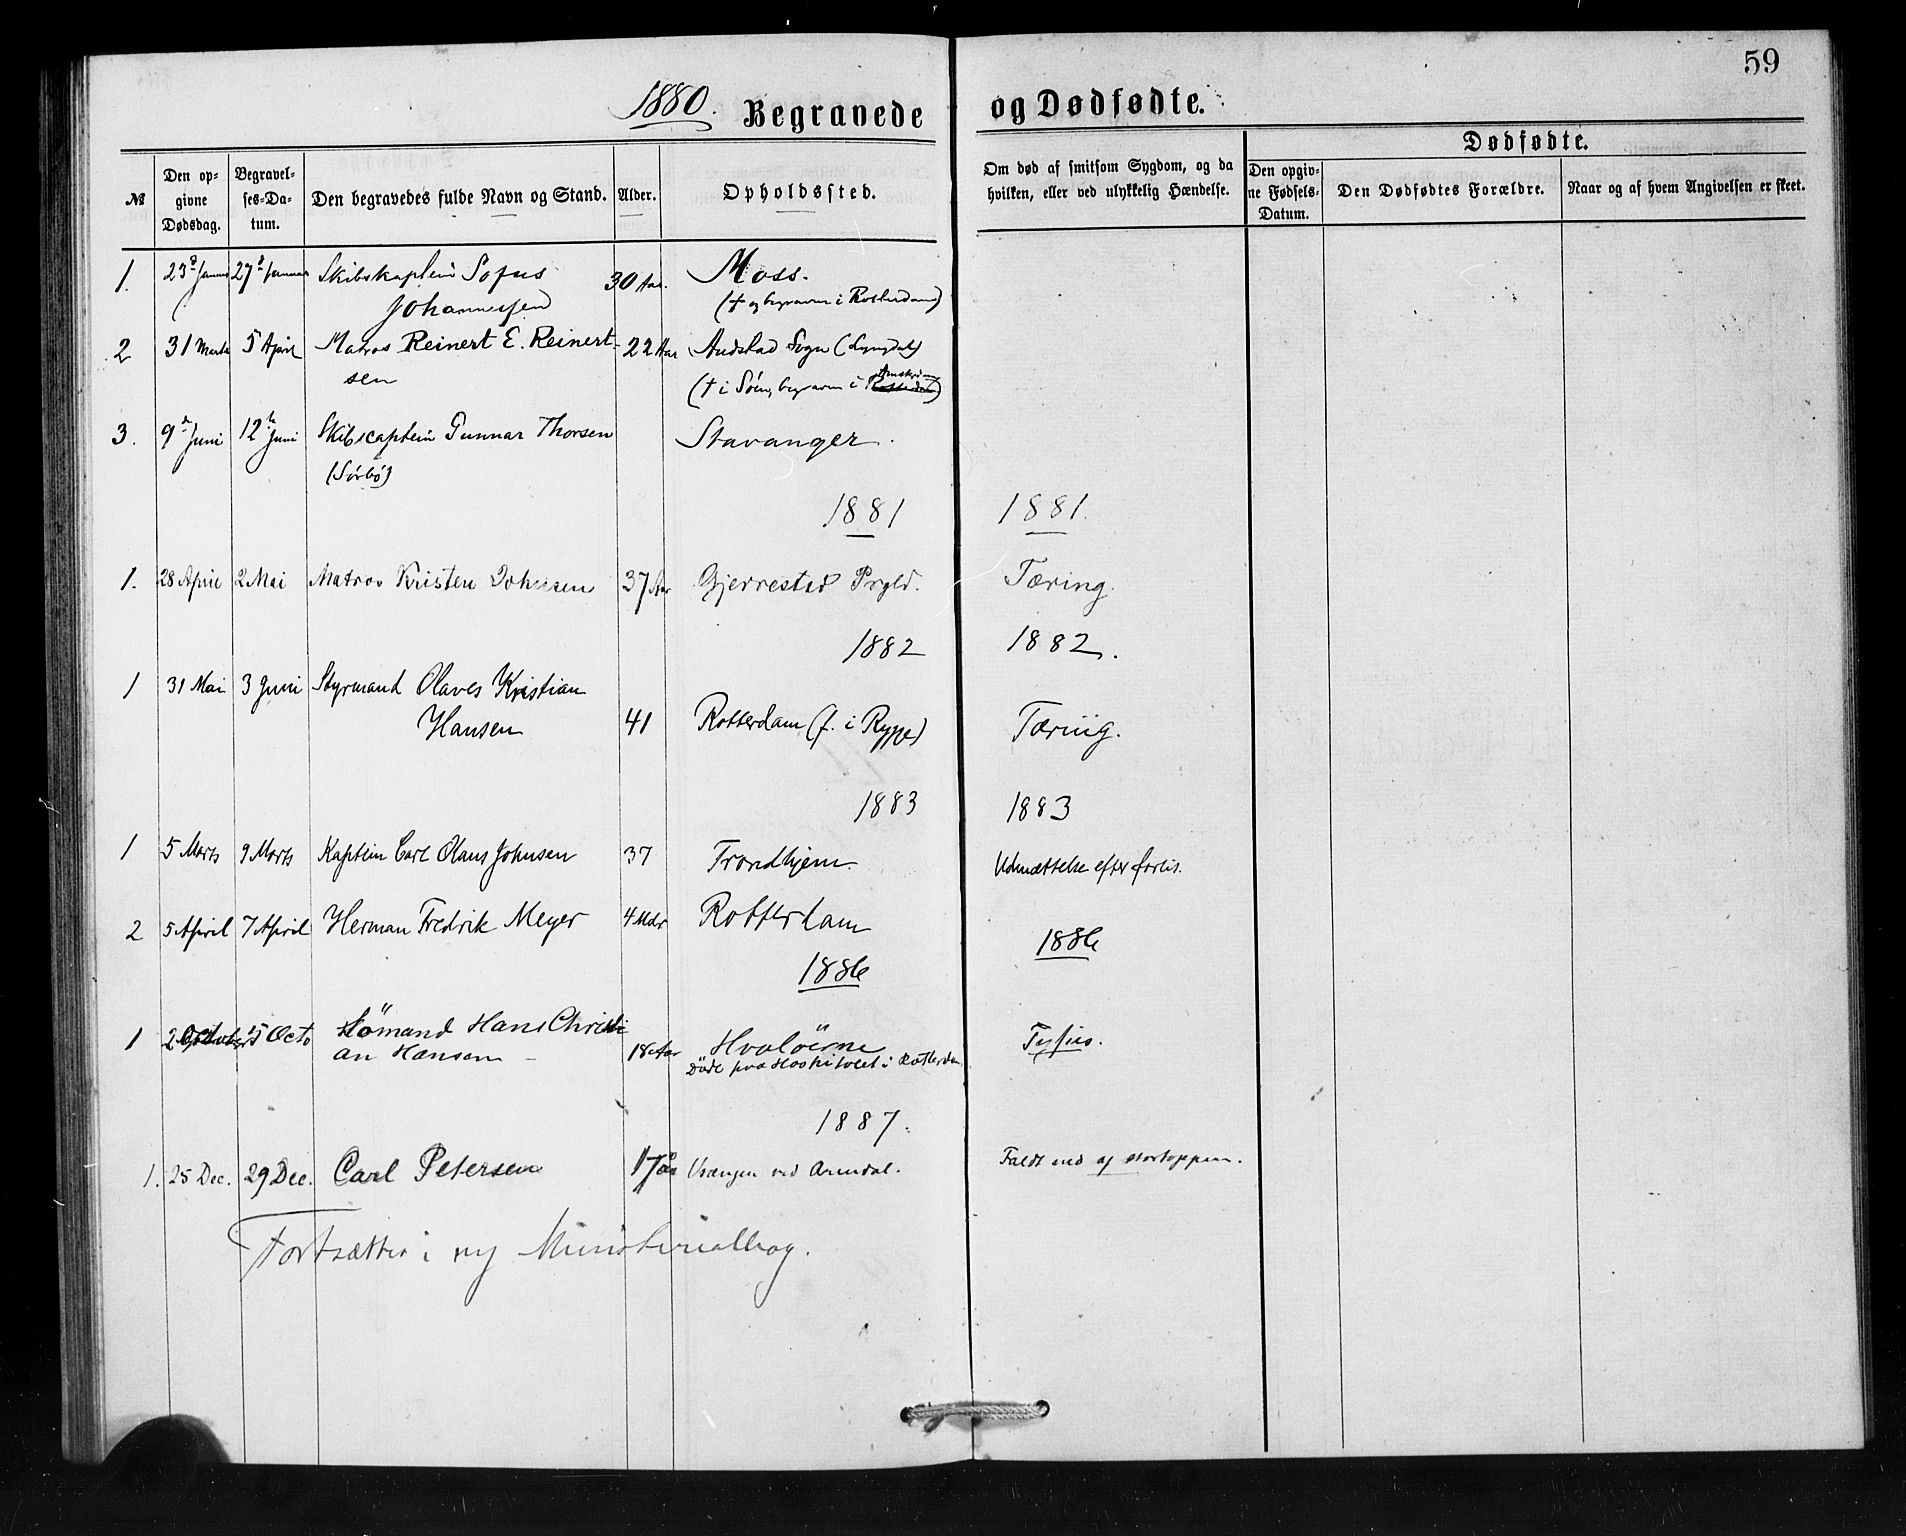 59
1880. Begravede og Dødfødte.
№ Den opgivne Dødsdag. Begravelses-Datum. Den begravedes fulde Navn og Stand. Alder. Opholdssted. Om død af smitsom Sygdom, og da hvilken, eller ved ulykkelig Hændelse. Dødfødte. Den opgivne Fødsels-Datum. Den Dødfødtes Forældre. Naar og af hvem Angivelsen er skeet.
1. 23 27 Skibskaptein Sofus 30 Aar. Moss.
Johannesen († og begraven i Rotterdam)
2 31 Marts 5 April Matros Reinert E. Reinert- 22 Aar Sogn (Lyngdal)
sen († i Söen, begraven i Rotterdam)
3. 9 Juni 12 Juni Skibscaptein Gunnar Thorsen Stavanger.
(Sörbö)
1881 1881.
1. 28 April 2 Mai Matros Kristen Johnsen 37 Aar Gjerrestad Prgld. Tæring.
1882 1882.
1 31 Mai 3 Juni Styrmand Olaves Kristian
Hansen 41 Rotterdam (f. i Rygge) Tæring.
1883 1883
1 5 Marts 9 Marts Kaptein Carl Olaus Johnsen 37 Trondhjem. Udmattelse efter forlis.
2 5 April 7 April Herman Fredrik Meyer 4 Mdr Rotterdam
1886 1886
1 2 October 5 Octo Sömand Hans Christi
an Hansen – 18 Aar Hvalöerne Tyfus.
Döde paa Hospitalet i Rotterdam
1887.
1. 25 Dec. 29 Dec. Carl Petersen 17 ved Arendal. Faldt ned af stortoppen.
Fortsættes i ny Ministerialbog.